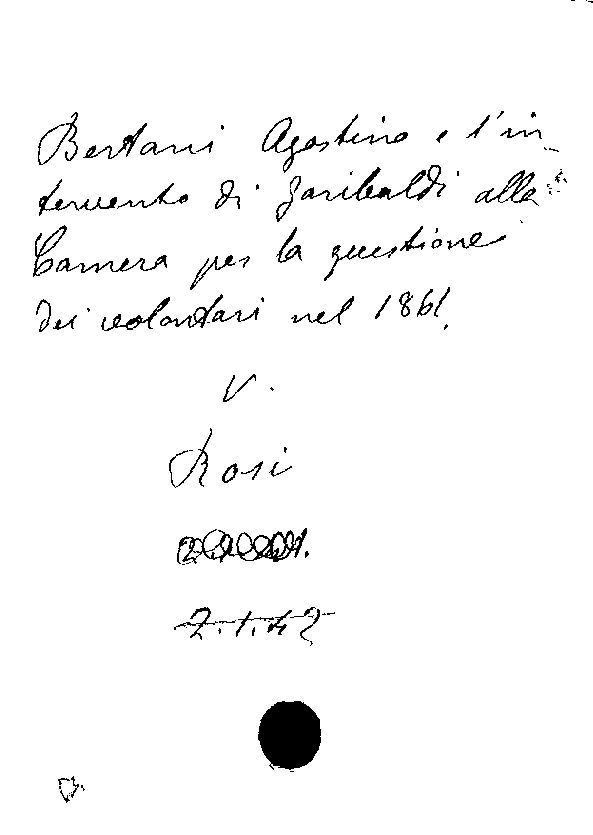 Bertani Agostino e l'in-
tervento di Garibaldi alla
Camera per la questione
dei volontari nel 1861.
V.
Rosi
2.1.42